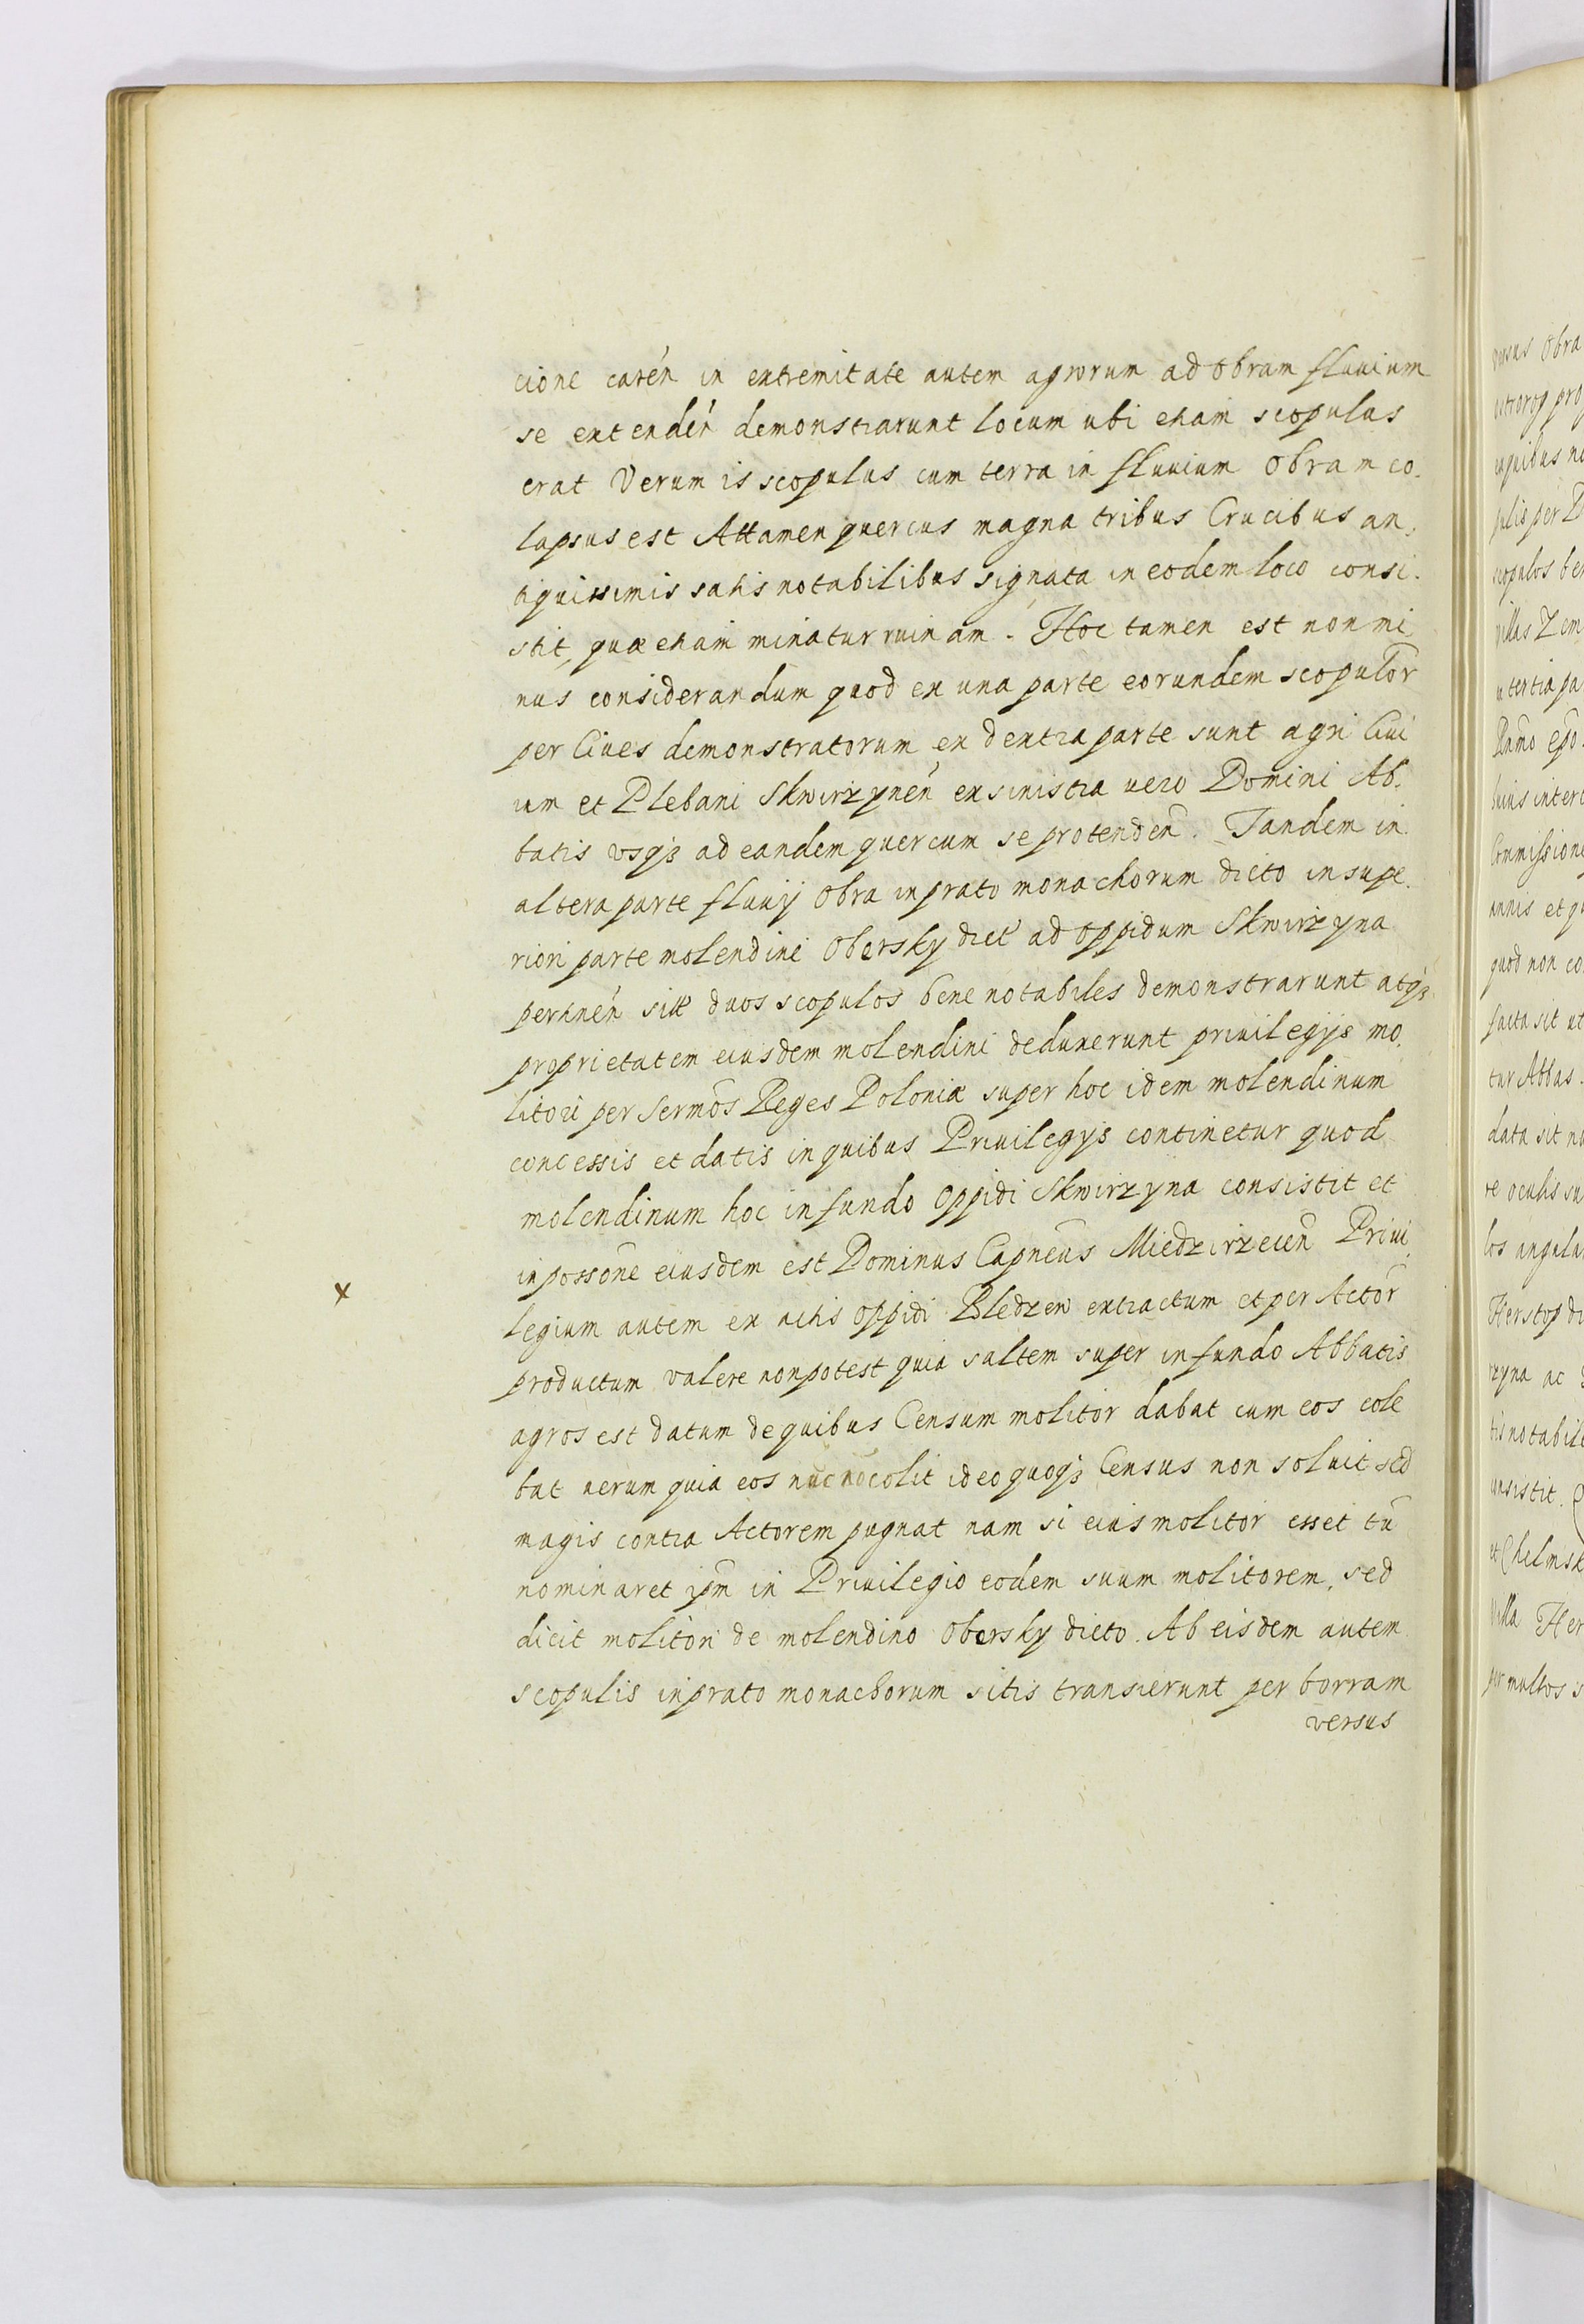 cione carén in extremitate autem agrorum ad Obram fluuium
se extendén demonstrarunt locum ubi etiam scopulus
erat Verum is scopulus cum terra in fluuium Obram co.
lapsus est Attamen quercus magna tribus Crucibus an.
tiquissimis satis notabilibus signata in eodem loco consi.
stit, quæ etiam minatur ruinam. Hoc tamen est non mi
nus considerandum quod ex una parte eorundem scopulor̃
per Ciues demonstratorum ex dextra parte sunt agri Ciui
um et Plebani Skwirzynen̄ ex sinistra uero Domini Ab.
batis vsq₃ ad eandem quercum se protenden̄. Tandem in
altera parte fluuij Obra in prato monachorum dicto in supe.
riori parte molendini Obersky dict̓ ad Oppidum Skwirzyna
pertinén sitæ duos scopulos bene notabiles demonstrarunt atq₃
proprietatem eiusdem molendini deduxerunt priuilegijs mo.
litori per Sermōs Reges Poloniæ super hoc idem molendinum
concessis et datis in quibus Priuilegijs continetur quod
molendinum hoc in fundo Oppidi Skwirzyna consistit et
in possōne eiusdem est Dominus Capnēus Miedzirzecen̄ Priui.
x
legium autem ex actis Oppidi Bledzew extractum et per Actor̄
productum valere non potest quia saltem super in fundo Abbatis
agros est datum de quibus Censum molitor dabat cum eos cole
bat uerum quia eos nūc nō colit ideo quoq₃ Census non soluit sed
magis contra Actorem pugnat nam si eius molitor esset tū
nominaret ipm̄ in Priuilegio eodem suum molitorem, sed
dicit molitori de molendino Obersky dicto. Ab eisdem autem
scopulis in prato monachorum sitis transierunt per borram
versus